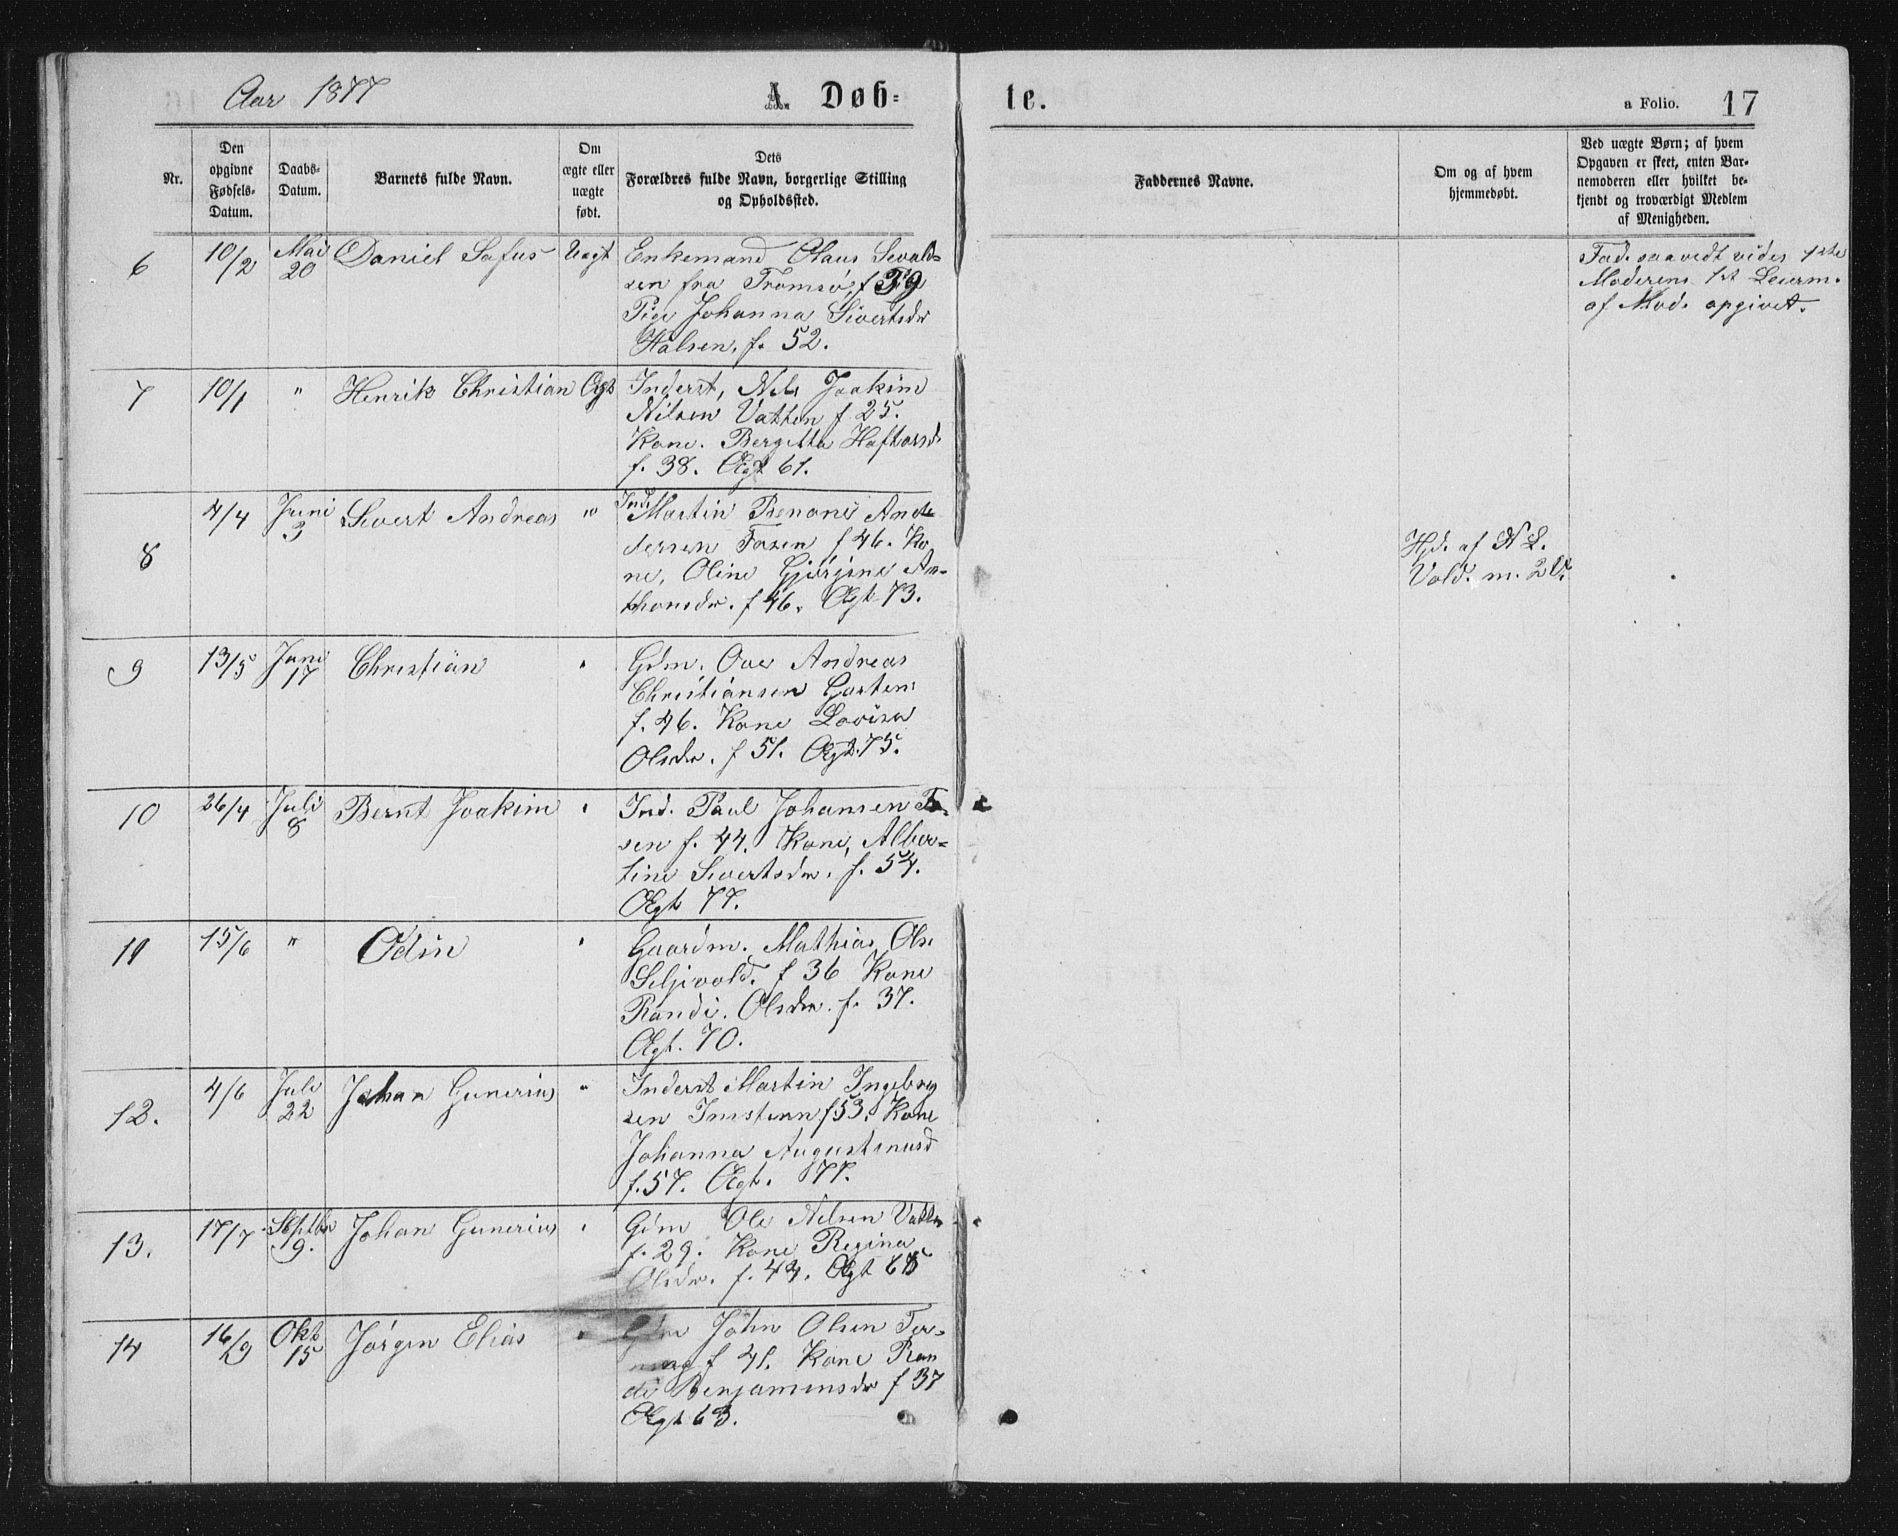 Aar 1877
A. Døb=
te.
a Folio.
17
Nr.
Den
opgivne
Fødsels-
Datum.
Daabs-
Datum.
Barnets fulde Navn.
Om
ægte eller
uægte
født.
Dets
Forældres fulde Navn, borgerlige Stilling
og Opholdssted.
Faddernes Navne.
Om og af hvem
hjemmedøbt.
Ved uægte Børn; af hvem
Opgaven er skeet, enten Bar-
nemoderen eller hvilket be-
kjendt og troværdigt Medlem
af Menigheden.
6
10/2
Mai
20
Daniel Sofus
Uægt
Enkemand Olaus Sevald-
sen fra Tromsø, f 39
Pige Johanna Sivertsdr
Halsen. f. 52.
Fad. saavidt vides 1ste
Moderens 1st Leierm.
af Mod. opgivet.
7
10/1
"
Henrik Christian
Ægt
Inderst, Nils Joakim
Nilsen Vatten f 25.
Kone. Bergitta Haftorsd
f. 38. Ægt 61.
8
4/4
Juni
3
Sivert Andreas
"
Ind. Martin Benoni An-
dersen Fosen f 46. Ko
ne, Oline Gjørgine An-
thonsdr. f 46. Ægt 73.
Hjd. af N L.
Vold. m. 2 V.
9
13/5
Juni
17
Christian
"
Gdm. Ove Andreas
Christiansen Garten
f. 46. Kone Lovisa
Olsdr. f 51. Ægt. 75.
10
26/4
Juli
8
Bernt Joakim
"
Ind. Paul Johansen Fo-
sen f. 44. Kone, Alber-
tine Sivertsdr. f. 54.
Ægt 77.
11
15/6
"
Odin
"
Gaardm. Mathias Ols.
Seljevold. f 36 Kone
Randi. Olsdr. f. 37.
Ægt. 70.
12.
4/6
Juli
22
Johan Gunerius
"
Inderst Martin Ingebrig
sen f 53. Kone
Johanna Augustinusd
f. 57. Ægt. 77.
13.
17/7
Septbr
9.
Johan Gunerius
"
Gdm Ole Nilsen Vatten
f. 29. Kone Regina
Olsdr. f. 44. Ægt 65
14
16/9
Okt
15
Jørgen Elias
"
Gdm John Olsen Ter-
ning f 41. Kone Ran
di Benjaminsdr f 37
Ægt 63.